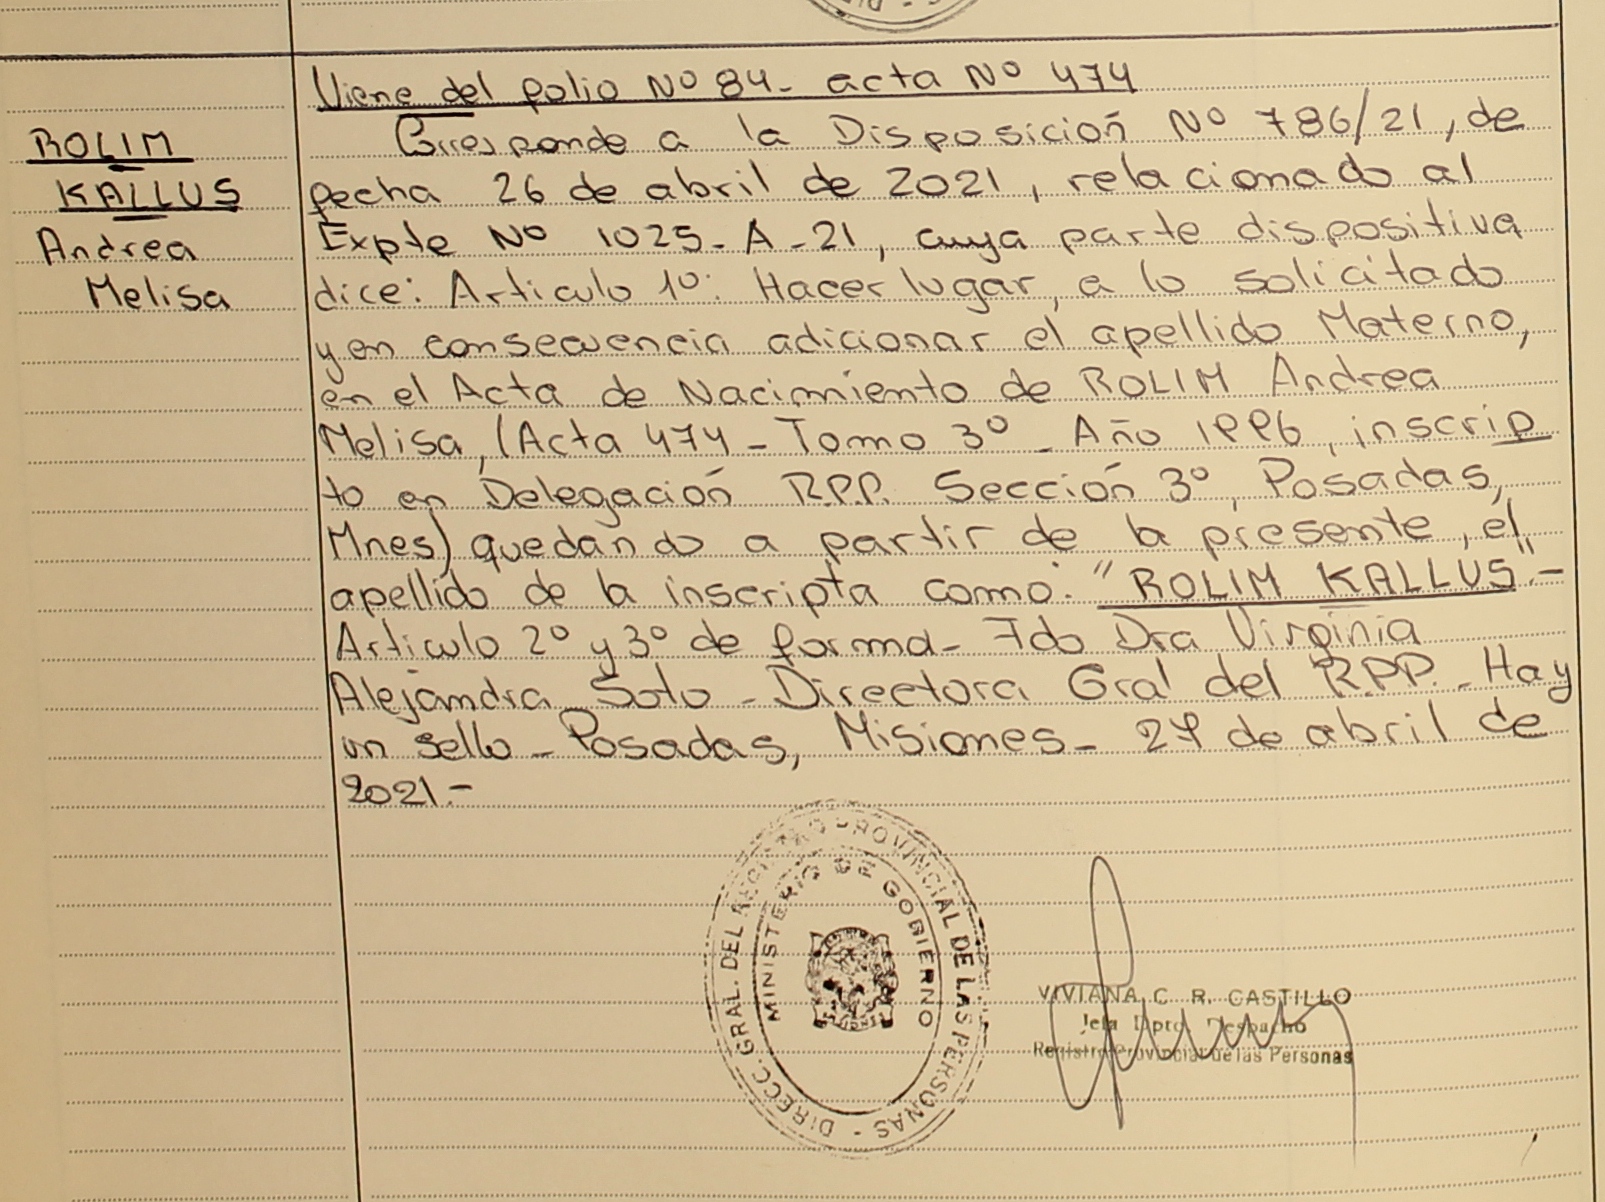 Viene del folio Nº 84- acta Nº 474
ROLIM
KALLUS
Andrea
Melisa
Corresponde a la Disposición Nº 786/21, de
fecha 26 de abril de 2021, relacionado al
Expte Nº 1025-A-21, cuya parte dispositiva
dice: Articulo 1º: Hacer lugar, a lo solicitado
y en consecuencia adicionar el apellido Materno,
en el Acta de Nacimiento de ROLIM Andrea
Melisa, (Acta 474 - Tomo 3º - Año 1996, inscrip
to en Delegación R.P.P. Sección 3º, Posadas,
Mnes) quedando a partir de la presente, el
apellido de la inscripta como: "ROLIM KALLUS".-
Articulo 2º y 3º de forma- Fdo Dra Virginia
Alejandra Soto - Directora Gral del R.P.P. - Hay
un sello - Posadas, Misiones - 27 de abril de
2021.-
DIRECC. GRAL. DEL REGISTRO PROVINCIAL DE LAS PERSONAS -
MINISTERIO DE GOBIERNO
VIVIANA C. R. CASTILLO
Jefa Dpto. Despacho
Registro Provincial de las Personas